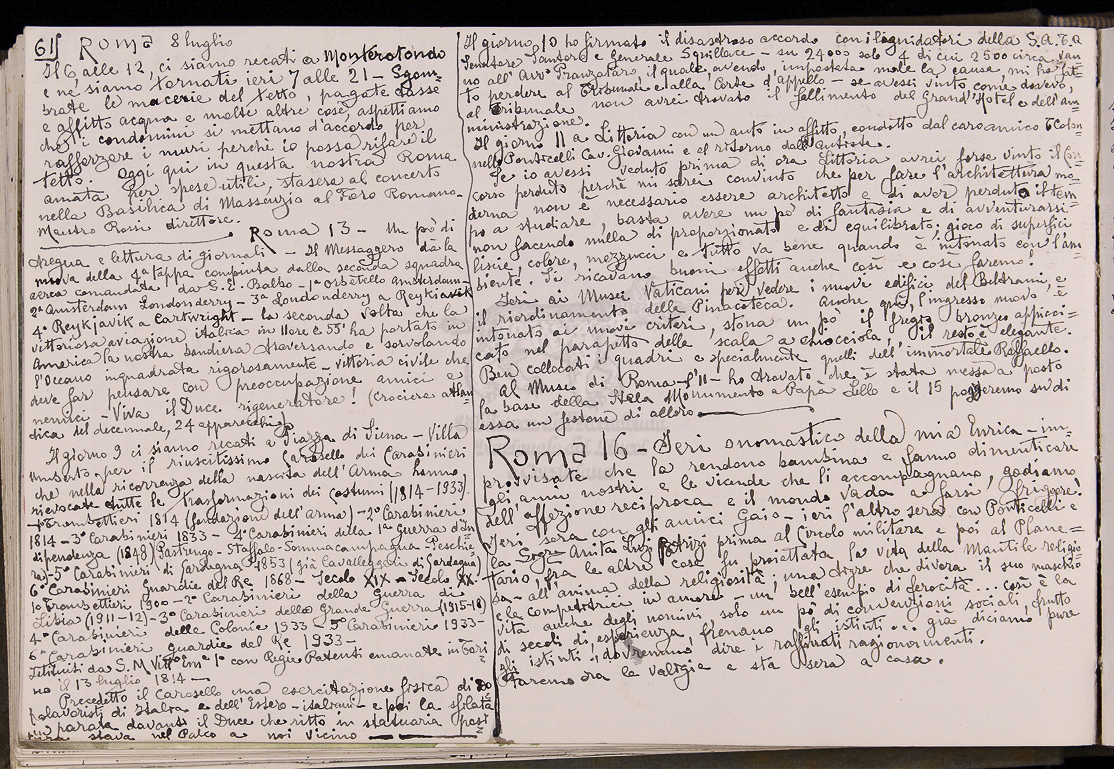 61 Roma 8 luglio
Il 6 alle 12, ci siamo recati a Monterotondo
e ne siamo tornati ieri 7 alle 21 - Sgom=
brate le macerie del tetto, pagate tasse
e affitto acqua e molte altre cose, aspettiamo
che i condomini si mettano d'accordo per
rafforzare i muri perchè io possa rifare il
tetto. Oggi qui in questa nostra Roma
amata per spese utili, stasera al concerto
nella Basilica di Massenzio al Foro Romano.
Maestro Rossi direttore.
Roma 13 - Un pò di
tregua e lettura di giornali - Il Messaggero dà la
nuova della 4ª tappa compiuta dalla seconda squadra
aerea comandata da S.E. Balbo - 1ª orbetello Amsterdam-
2ª Amsterdam Londonderry - 3ª Londonderry a Reykjavik
4ª Reykjavik a Cartwright - la seconda volta che la
vittoriosa aviazione italica in 11 ore e 55' ha portato in
America la nostra bandiera traversando e sorvolando
l'Oceano inquadrata rigorosamente - vittoria civile che
deve far pensare con preoccupazione amici e
nemici - Viva il Duce rigeneratore! (crociere atlan
tica del decennale, 24 apparecchi)
Il giorno 9 ci siamo recati a Piazza di Siena - Villa
Umberto, per il riuscitissimo Carosello dei Carabinieri
che nella ricorrenza della nascita dell'Arma hanno
rievocate tutte le trasformazioni dei costumi (1814-1933)
Trombettieri 1814 (fondazione dell'arma) - 2º Carabinieri
1814 - 3º Carabinieri 1833 - 4º Carabinieri della 1ª Guerra d'In
dipendenza (1848) Pastrengo - Staffalo - Sommacampagna - Peschie
ra) - 5º Carabinieri di Sardegna 1853 (già Cavalleggeri di Sardegna)
6º Carabinieri Guardie del Re 1868 - Secolo XIX - Secolo XX -
1º Trombettieri 1900 - 2º Carabinieri della Guerra di
Libia (1911-12) - 3º Carabinieri della Grande Guerra (1915-18)
4º Carabinieri delle Colonie 1933 - 5º Carabinieri 1933 -
6º Carabinieri guardie del Re 1933 -
Istituiti da S.M. Vitt. Em. 1º con Regie Patenti emanate in Tori
no il 13 luglio 1814 -
Precedette il Carosello una esercitazione fisica di
Dopolavoristi di Italia e dell'Estero - italiani - e poi la sfilata
in parata davanti il Duce che ritto in statuaria posi
tura stava nel Palco a noi vicino
Il giorno 10 ho firmato il disastroso accordo con i liquidatori della S.A.T.A
Senatore Santoro e Generale Squillace - su 24000 solo 4 di cui 2500 circa van
no all'Avv. Franzataro il quale, avendo impostata male la causa, mi ha fat=
to perdere al Tribunale e alla Corte d'appello - se avessi vinto come dovevo,
al Tribunale non avrei trovato il fallimento del Grand'Hotel e dell'am
ministrazione.
Il giorno 11 a Littoria con un auto in affitto, condotto dal caro amico T. Colon=
nello Ponticelli Cav. Giovanni e al ritorno dall'Autista.
Se io avessi veduto prima di ora Littoria avrei forse vinto il Con
corso perduto perchè mi sarei convinto che per fare l'architettura mo=
derna non è necessario essere architetto e di aver perduto il tem=
po a studiare, basta avere un pò di fantasia e di avventurarsi
non facendo nulla di proporzionato e di equilibrato: gioco di superfici
liscie, colore, mezzucci e tutto va bene quando è intonato con l'am
biente. Si ricavano buoni effetti anche così e così faremo!
Ieri ai Musei Vaticani per vedere i nuovi edifici del Beltrami, e
il riordinamento della Pinacoteca. Anche qui l'ingresso nuovo, è
intonato ai nuovi criteri, stona un pò il fregio bronzeo appicci=
cato nel parapetto della scala a chiocciola, il resto è elegante.
Ben collocati i quadri e specialmente quelli dell'immortale Raffaello.
Al Museo di Roma - l'11 - ho trovato che è stata messa a posto
la base della Stella Monumento a Papà Lello e il 15 porremo su di
essa un festone di alloro
Roma 16 - Ieri onomastico della mia Enrica - im=
provvisate che la rendono bambina e fanno dimenticare
gli anni nostri e le vicende che li accompagnano, godiamo
dell'affezione reciproca e il mondo vada a farsi friggere!
Ieri sera con gli amici Gais - ieri l'altro sera con Ponticelli e
la Sigra Anita Luzi Patrizi prima al Circolo militare e poi al Plane=
tario, fra le altre cose fu proiettata la vita della Mantile religio
sa - all'anima della religiosità; una tigre che divora il suo maschio
e la competitrice in amore - un bell'esempio di ferocità... così è la
vita anche degli uomini solo un pò di convenzioni sociali, frutto
di secoli di esperienza, frenano gli istinti... già diciamo pure
gli istinti, dovremmo dire i raffinati ragionamenti.
Faremo ora le valigie e sta sera a casa.